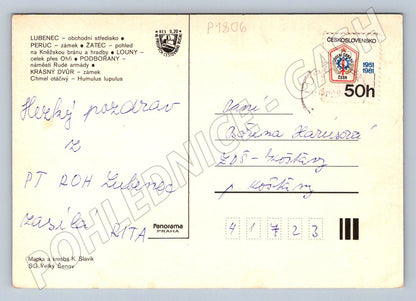 LUBENEC - obchodní středisko •
PERUC - zámek • ŽATEC - pohled
na Kněžskou bránu a hradby • LOUNY -
celek přes Ohři • PODBOŘANY -
náměstí Rudé armády •
KRÁSNÝ DVŮR - zámek
Chmel otáčivý - Humulus lupulus
Kčs 0,20
P1806
ČESKOSLOVENSKO
1951
1981
50h
Hezký pozdrav
z
PT ROH Lubenec
zasílá RITA
Paní
Božena
ZDŠ - Košťany
p. Košťany
4 1 7 2 3
Panorama
PRAHA
Mapka a kresba K. Slavík
SG Velký Šenov
POHLEDNICE - CASH